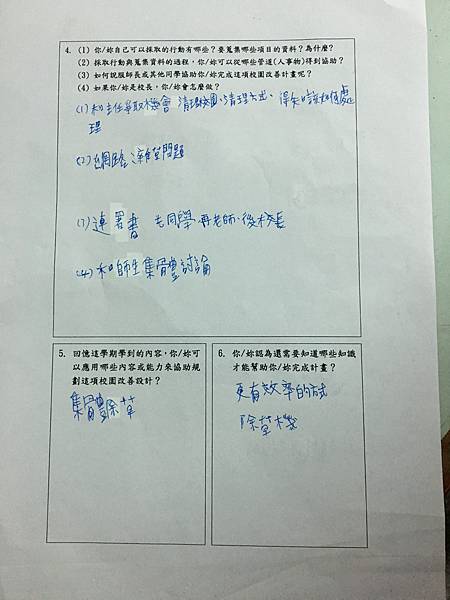 4. (1) 你/妳自己可以採取的行動有哪些？要蒐集哪些項目的資料？為什麼？
(2) 採取行動與蒐集資料的過程，你/妳可以從哪些管道(人事物)得到協助？
(3) 如何說服師長或其他同學協助你/妳完成這項校園改善計畫呢？
(4) 如果你/妳是校長，你/妳會怎麼做？
(1) 和主任爭取機會 清理校園、清理方式、得知該如何處
理
(2) 網路 雜草問題
(3) 連署書 先同學、再老師、後校長
(4) 和師生集體討論
5. 回憶這學期學到的內容，你/妳可
以應用哪些內容或能力來協助規
劃這項校園改善設計？
集體除草
6. 你/妳認為還需要知道哪些知識
才能幫助你/妳完成計畫？
更有效率的方式
除草機